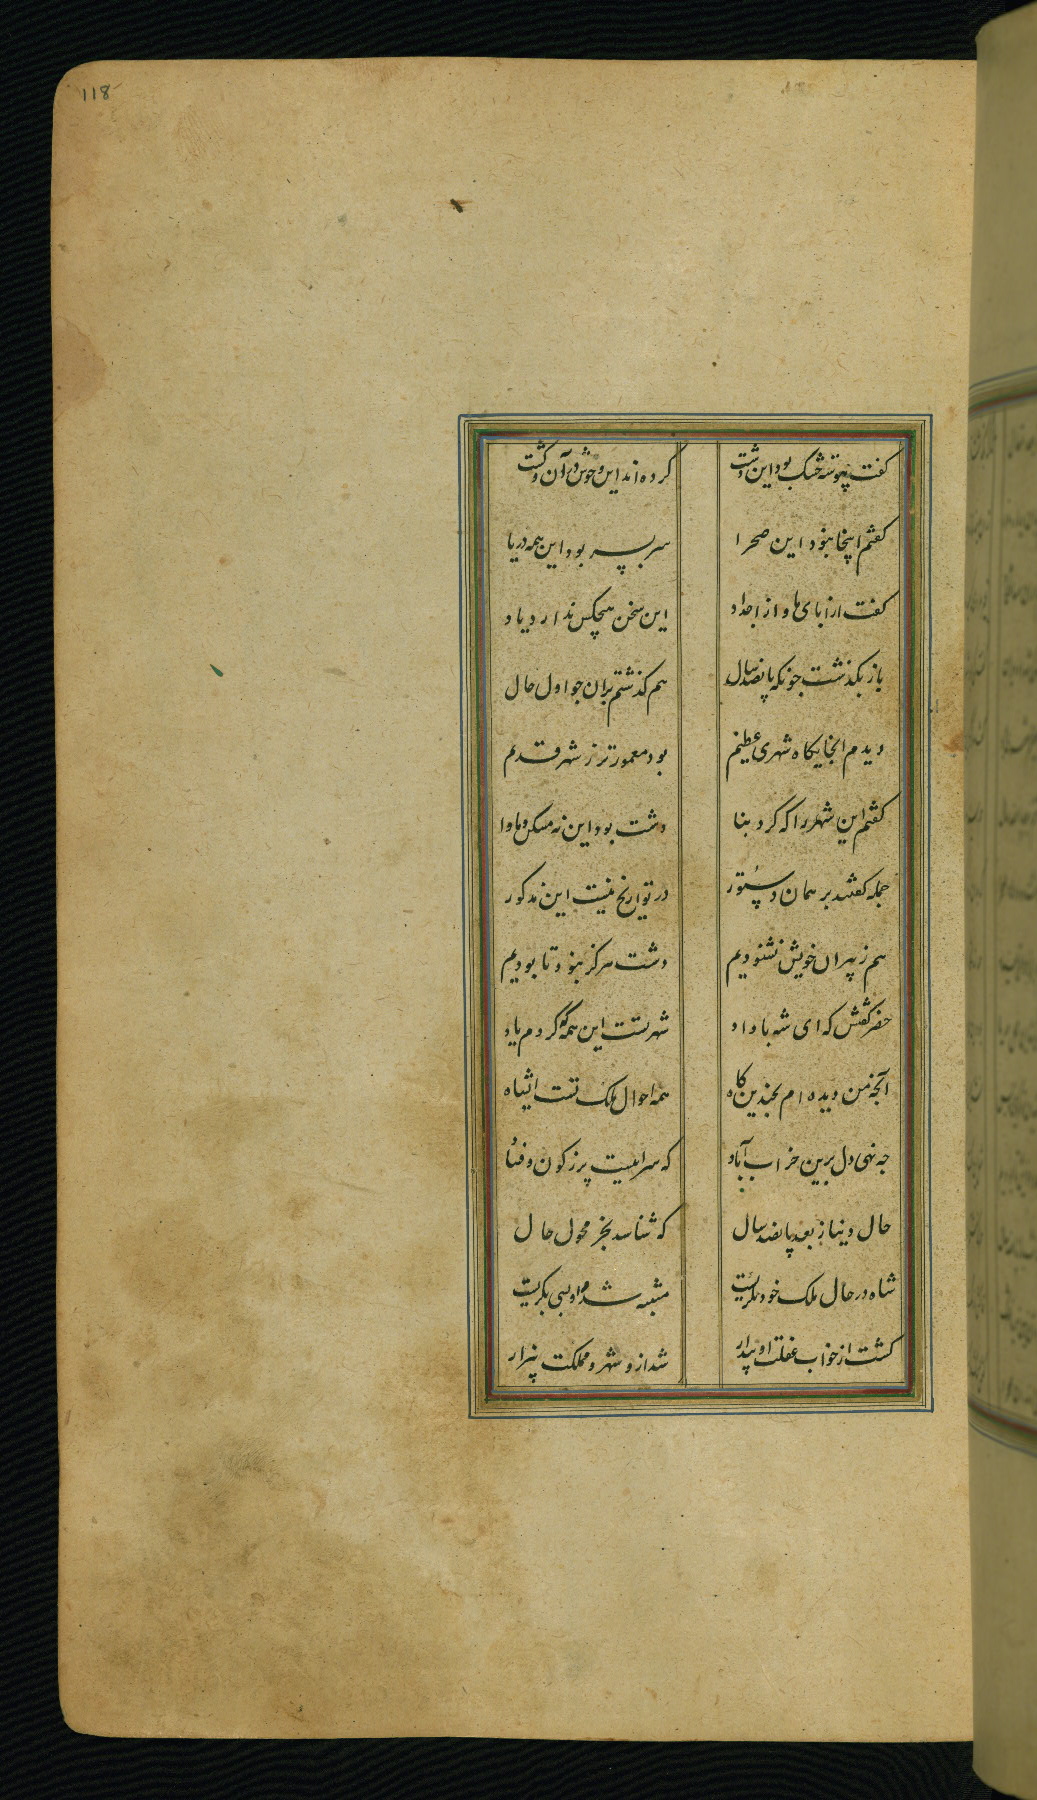 118
گفت پیوسته خشک بود این دشت
کرده اند این وحوش در آن گشت
گفتم اینجا نبود این صحرا
سربسر بود این همه دریا
گفت از ابای ما و از اجداد
این سخن هیچکس ندارد یاد
باز بگذشت چونکه پانصد سال
هم گذشتم بران جو اول حال
دیدم انجایگاه شهری عظیم
بود معمورتر ز شهر قدیم
گفتم این شهر را که کرد بنا
دشت بود این نه مسکن و ماوا
جمله گفتند بر همان دستور
در تواریخ نیست این مذکور
هم ز پیران خویش نشنودیم
دشت هرگز نبود تا بودیم
خضر گفتش که ای شه باداد
شهرتست این همه که کردم یاد
آنچه من دیده ام بچندین گاه
همه احوال ملک تست ای شاه
چه نهی دل برین خراب آباد
که سراییست پر ز کون و فساد
حال دنیا ز بعد پانصد سال
که شناسد بجز محول حال
شاه در حال ملک خود نگریست
متنبه شد و بسی بگریست
گشت از خواب غفلت او بیدار
شد از و شهر و مملکت بیزار